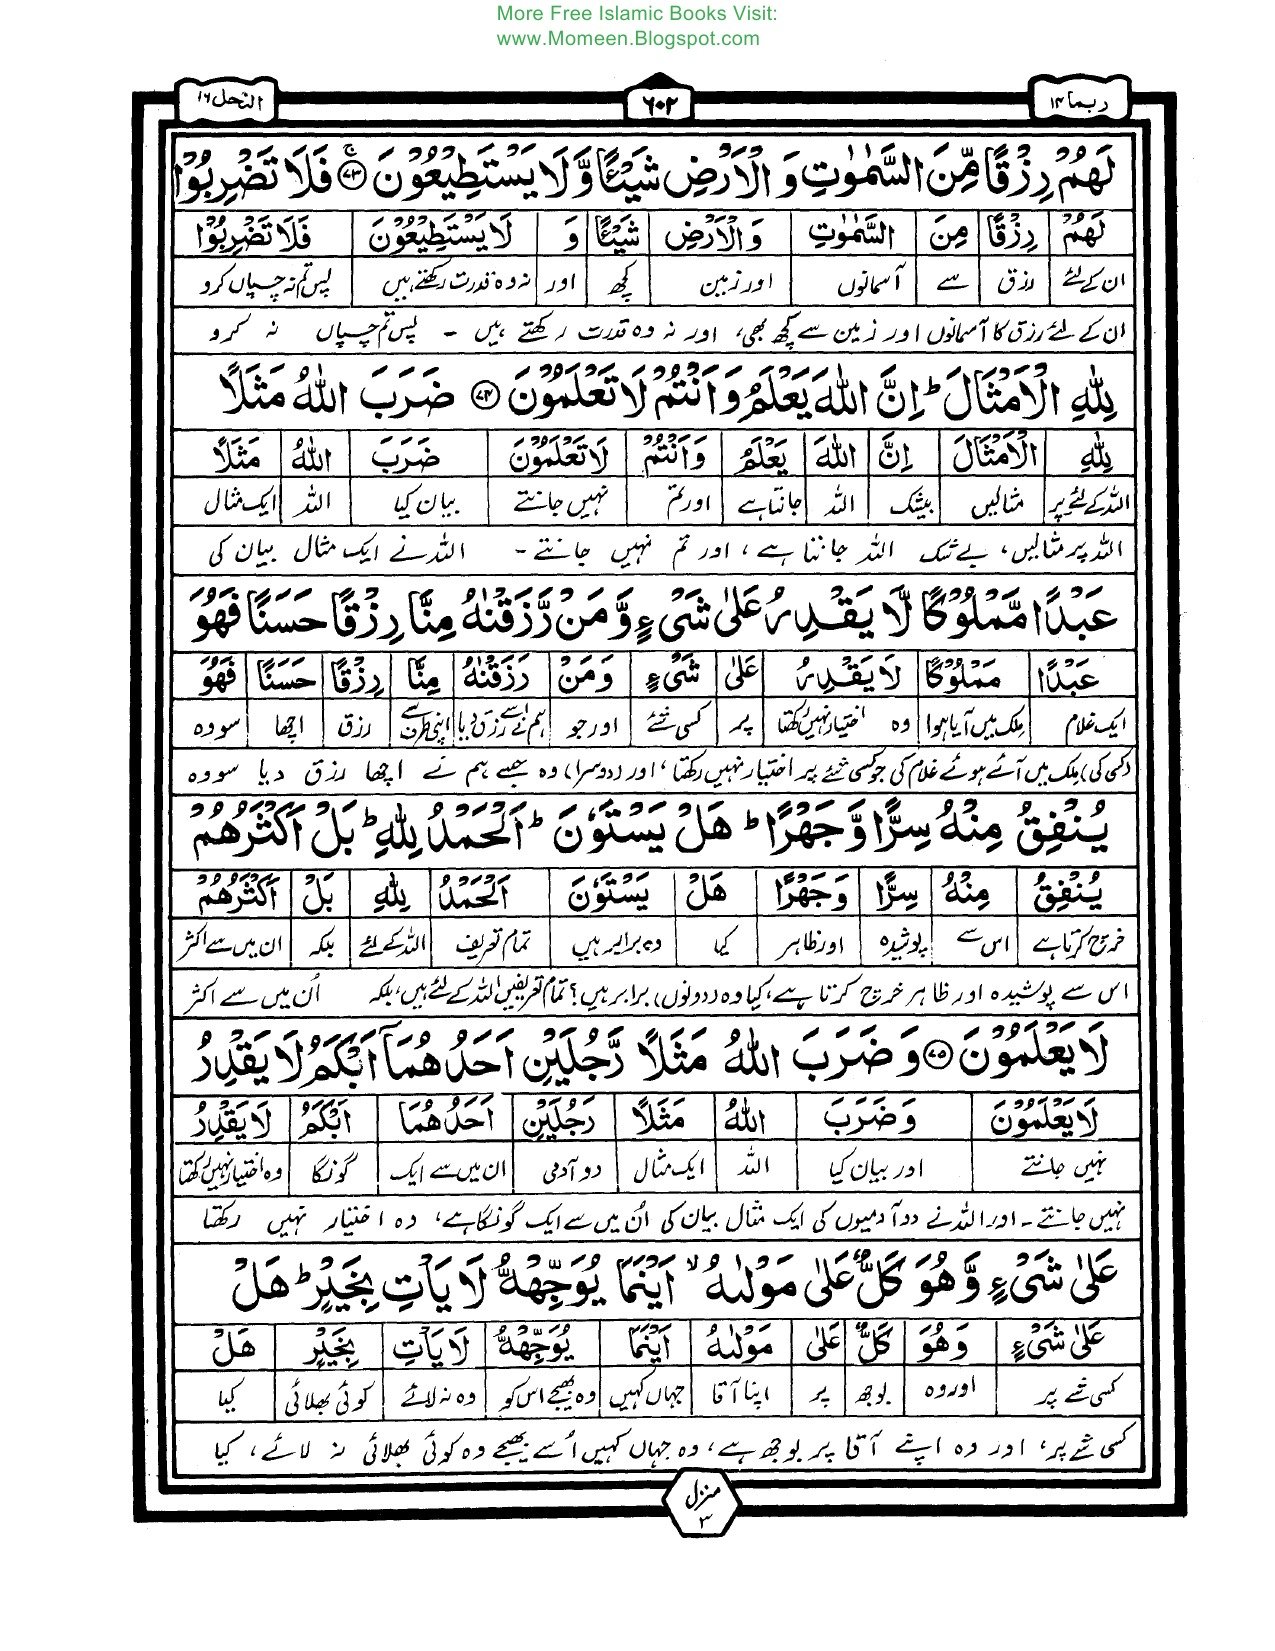 More Free Islamic Books Visit:
www.Momeen.Blogspot.com
ربما ۱۴ ۶۰۲ النحل ۱۶
لَهُمْ رِزْقًا مِّنَ السَّمٰوٰتِ وَ الْاَرْضِ شَيْـًٔا وَّ لَا يَسْتَطِيْعُوْنَ ۷۳ فَلَا تَضْرِبُوْا
لَهُمْ رِزْقًا مِنَ السَّمٰوٰتِ وَالْاَرْضِ شَيْـًٔا وَ لَا يَسْتَطِيْعُوْنَ فَلَا تَضْرِبُوْا
ان کے لئے رزق سے آسمانوں اور زمین کچھ اور نہ وہ قدرت رکھتے ہیں پس تم نہ چسپاں کرو
ان کے لئے رزق کا آسمانوں اور زمین سے کچھ بھی، اور نہ وہ قدرت رکھتے ہیں - پس تم چسپاں نہ کرو
لِلّٰهِ الْاَمْثَالَ ؕ اِنَّ اللّٰهَ يَعْلَمُ وَ اَنْتُمْ لَا تَعْلَمُوْنَ ۷۴ ضَرَبَ اللّٰهُ مَثَلًا
لِلّٰهِ الْاَمْثَالَ اِنَّ اللّٰهَ يَعْلَمُ وَاَنْتُمْ لَا تَعْلَمُوْنَ ضَرَبَ اللّٰهُ مَثَلًا
اللہ کے لئے پر مثالیں بیشک اللہ جانتا ہے اور تم نہیں جانتے بیان کیا اللہ ایک مثال
اللہ پر مثالیں، بے شک اللہ جانتا ہے، اور تم نہیں جانتے - اللہ نے ایک مثال بیان کی
عَبْدًا مَّمْلُوْكًا لَّا يَقْدِرُ عَلٰى شَيْءٍ وَّ مَنْ رَّزَقْنٰهُ مِنَّا رِزْقًا حَسَنًا فَهُوَ
عَبْدًا مَمْلُوْكًا لَا يَقْدِرُ عَلٰى شَيْءٍ وَمَنْ رَزَقْنٰهُ مِنَّا رِزْقًا حَسَنًا فَهُوَ
ایک غلام ملک میں آیا ہوا وہ اختیار نہیں رکھتا پر کسی شئے اور جو ہم نے اسے رزق دیا اپنی طرف سے رزق اچھا سو وہ
(کسی کی) ملک میں آئے ہوئے غلام کی جو کسی شئے پر اختیار نہیں رکھتا، اور (دوسرا) وہ جسے ہم نے اچھا رزق دیا سو وہ
يُنْفِقُ مِنْهُ سِرًّا وَّ جَهْرًا ؕ هَلْ يَسْتَوٗنَ ؕ اَلْحَمْدُ لِلّٰهِ ؕ بَلْ اَكْثَرُهُمْ
يُنْفِقُ مِنْهُ سِرًّا وَجَهْرًا هَلْ يَسْتَوٗنَ اَلْحَمْدُ لِلّٰهِ بَلْ اَكْثَرُهُمْ
خرچ کرتا ہے اس سے پوشیدہ اور ظاہر کیا وہ برابر ہیں تمام تعریف اللہ کے لئے بلکہ ان میں سے اکثر
اس سے پوشیدہ اور ظاہر خرچ کرتا ہے، کیا وہ (دونوں) برابر ہیں؟ تمام تعریفیں اللہ کے لئے ہیں، بلکہ اُن میں سے اکثر
لَا يَعْلَمُوْنَ ۷۵ وَ ضَرَبَ اللّٰهُ مَثَلًا رَّجُلَيْنِ اَحَدُهُمَاۤ اَبْكَمُ لَا يَقْدِرُ
لَا يَعْلَمُوْنَ وَضَرَبَ اللّٰهُ مَثَلًا رَجُلَيْنِ اَحَدُهُمَا اَبْكَمُ لَا يَقْدِرُ
نہیں جانتے اور بیان کیا اللہ ایک مثال دو آدمی ان میں سے ایک گونگا وہ اختیار نہیں رکھتا
نہیں جانتے - اور اللہ نے دو آدمیوں کی ایک مثال بیان کی اُن میں سے ایک گونگا ہے، وہ اختیار نہیں رکھتا
عَلٰى شَيْءٍ وَّ هُوَ كَلٌّ عَلٰى مَوْلٰىهُ ۙ اَيْنَمَا يُوَجِّهْهُّ لَا يَاْتِ بِخَيْرٍ ؕ هَلْ
عَلٰى شَيْءٍ وَهُوَ كَلٌّ عَلٰى مَوْلٰىهُ اَيْنَمَا يُوَجِّهْهُّ لَا يَاْتِ بِخَيْرٍ هَلْ
کسی شے پر اور وہ بوجھ پر اپنا آقا جہاں کہیں وہ بھیجے اس کو وہ نہ لائے کوئی بھلائی کیا
کسی شے پر، اور وہ اپنے آقا پر بوجھ ہے، وہ جہاں کہیں اُسے بھیجے وہ کوئی بھلائی نہ لائے، کیا
منزل ۳